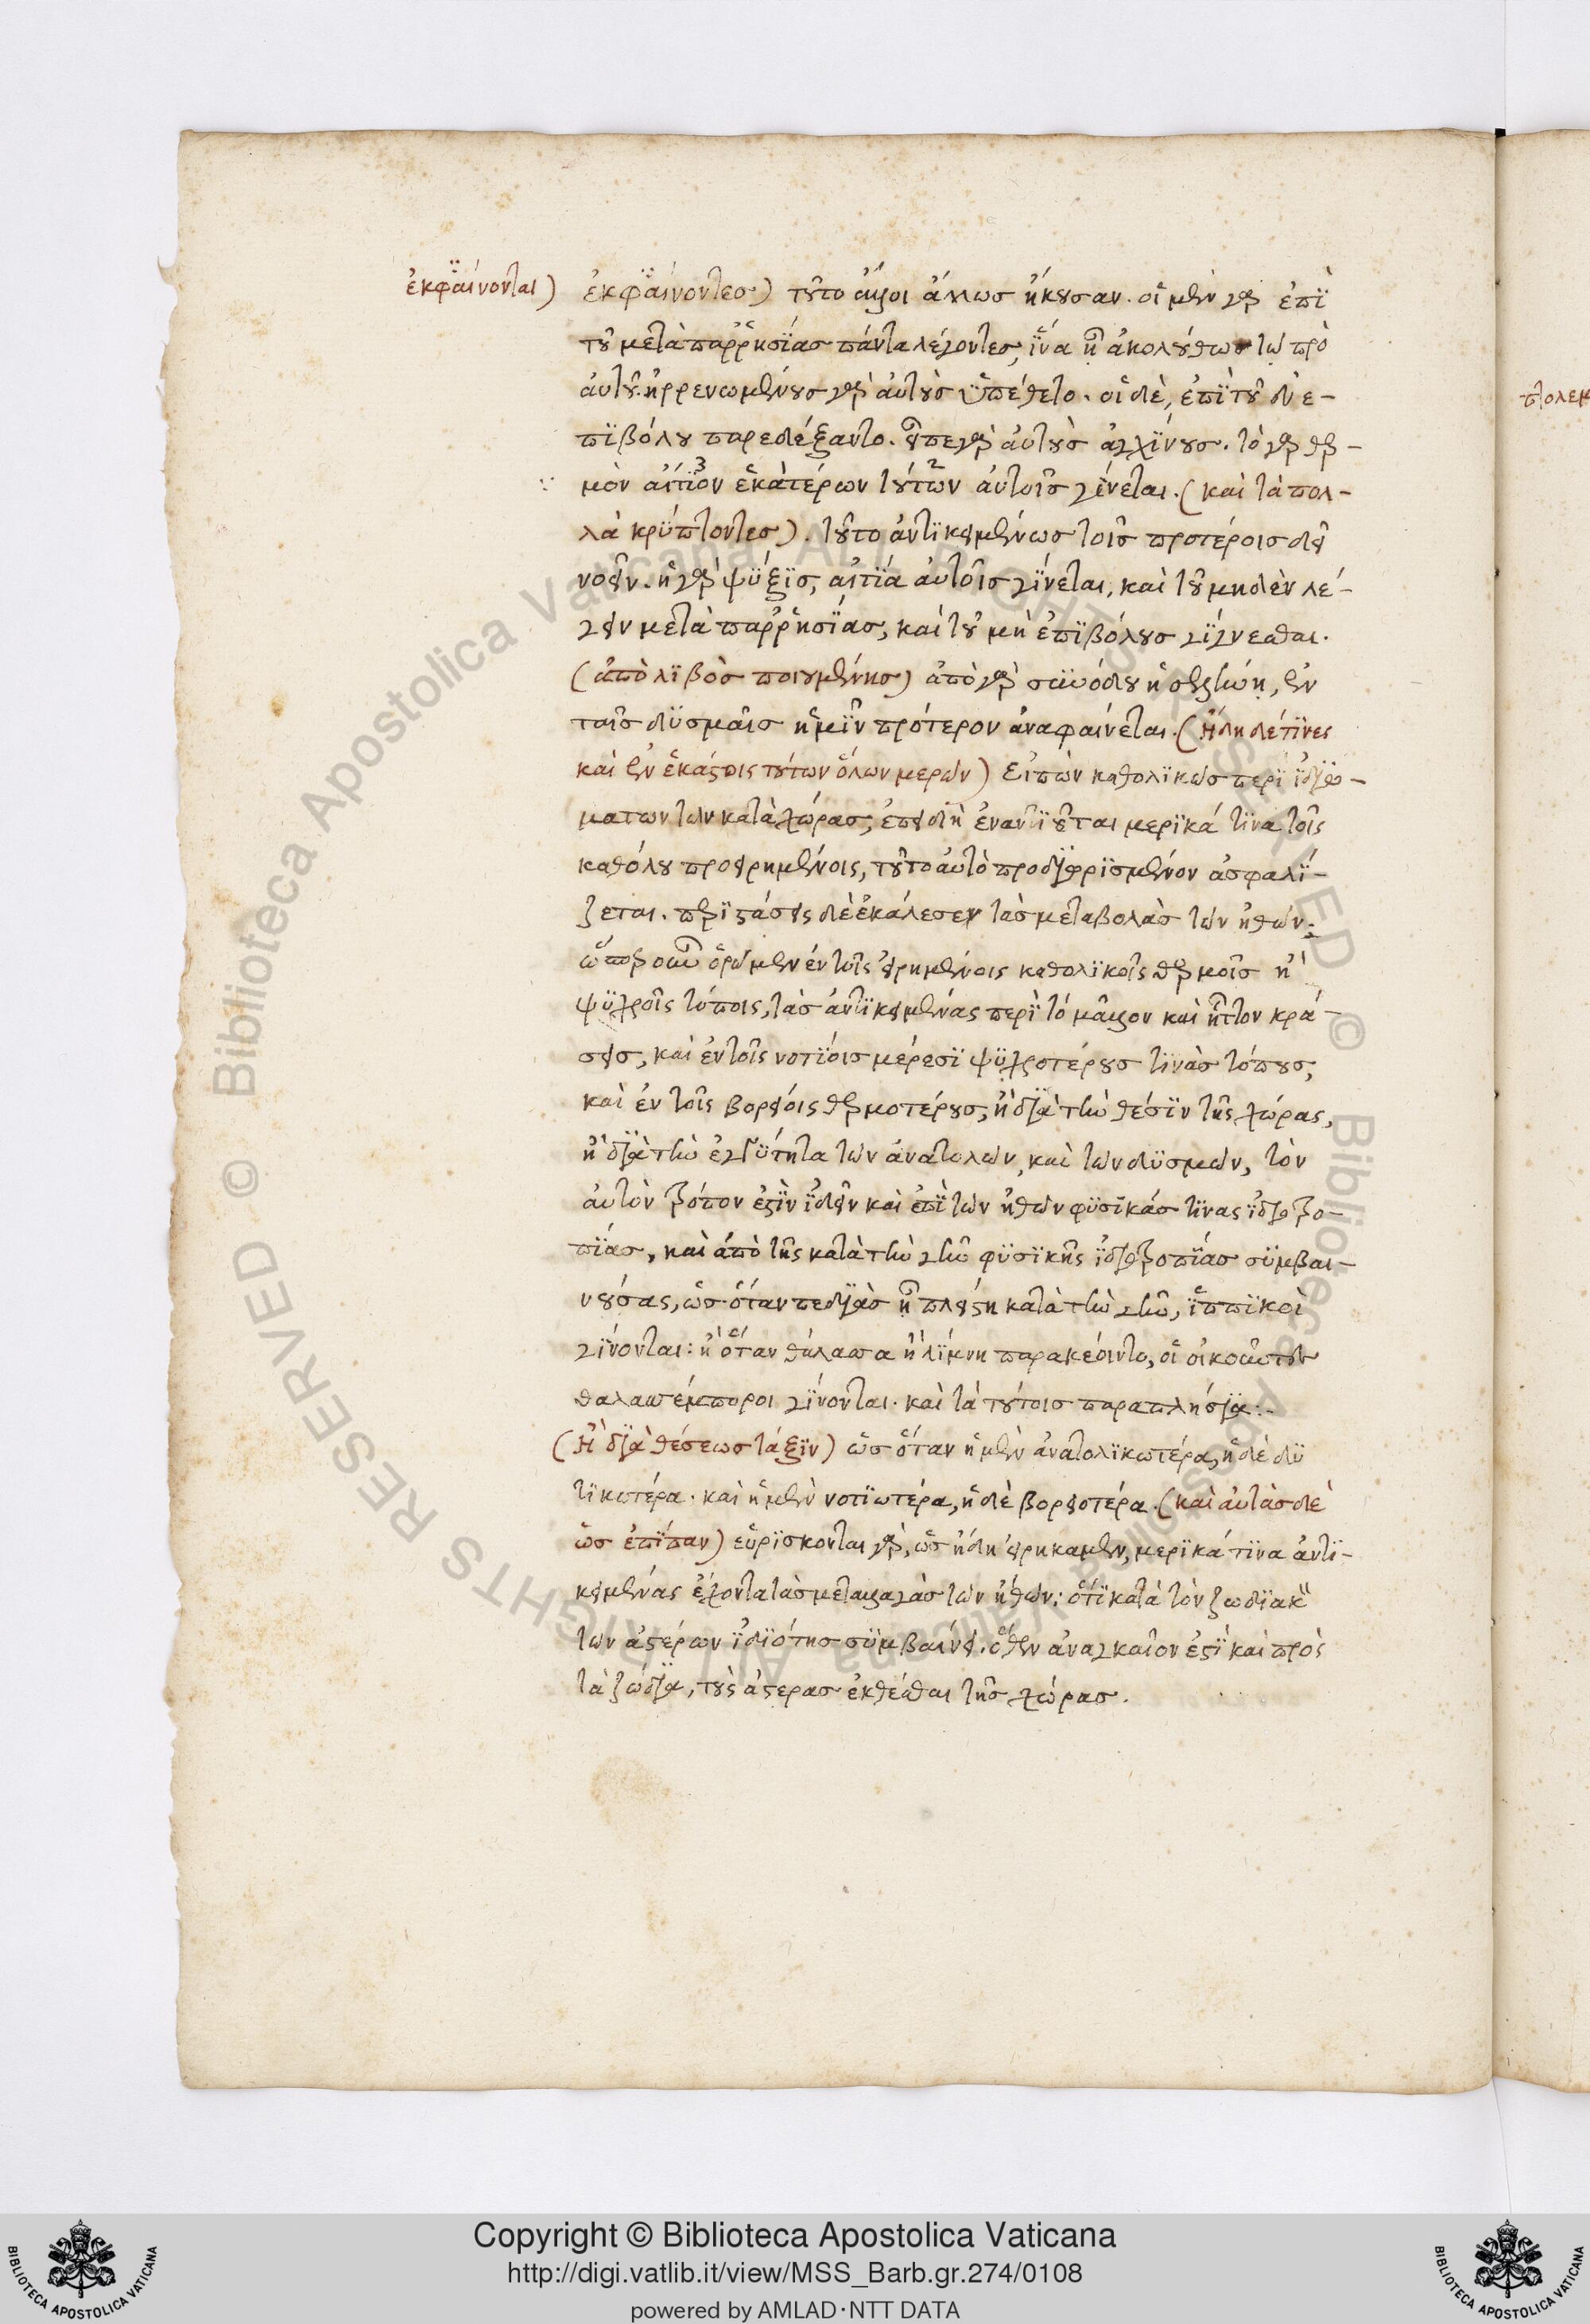 ἐκφαίνονται)
ἐκφαίνοντες) τοῦτο ἄλλοι ἄλλως ἤκουσαν. οἱ μὲν γὰρ ἐπὶ
τοῦ μετὰ παῤῥησίας πάντα λέγοντες, ἵνα ᾖ ἀκολούθως τῷ πρὸ
αὐτοῦ. ἠρρενωμένους γὰρ αὐτοὺς ὑπέθετο. οἱ δὲ, ἐπὶ τοῦ ἐ-
πιβόλου παρεδέξαντο. εἶπε γὰρ αὐτοὺς ἀγχίνους. τὸ γὰρ θερ-
μὸν αἴτιον 3 ἑκατέρων τούτων 2 αὐτοῖς γίνεται. (καὶ τὰ πολ-
λὰ κρύπτοντες). τοῦτο ἀντικειμένως τοῖς προτέροις δεῖ
νοεῖν. ἡ γὰρ ψύξις, αἰτία αὐτοῖς γίνεται, καὶ τοῦ μηδὲν λέ-
γειν μετὰ παῤῥησίας, καὶ τοῦ μὴ ἐπιβόλους γίγνεσθαι.
(ἀπὸ λιβὸς ποιουμένης) ἀπὸ γὰρ συνόδου ἡ σελήνη, ἐν
ταῖς δυσμαῖς ἡμῖν πρότερον ἀναφαίνεται. (Ἤδη δέ τινες
καὶ ἐν ἑκάστοις τούτων ὅλων μερῶν) Εἰπὼν καθολικῶς περὶ ἰδιω-
μάτων τῶν κατὰ χώρας, ἐπειδὴ ἐναντιοῦται μερικά τινα τοῖς
καθόλου προειρημένοις, τοῦτο αὐτὸ προδιωρισμένον ἀσφαλί-
ζεται. περιστάσεις δὲ ἐκάλεσεν τὰς μεταβολὰς τῶν ἠθῶν.
ὥσπερ οὖν ὁρῶμεν ἐν τοῖς εἰρημένοις καθολικοῖς θερμοῖς ἢ
ψυχροῖς τόποις, τὰς ἀντικειμένας περὶ τὸ μᾶλλον καὶ ἧττον κρά-
σεις, καὶ ἐν τοῖς νοτίοις μέρεσι ψυχροτέρους τινὰς τόπους,
καὶ ἐν τοῖς βορείοις θερμοτέρους, ἢ διὰ τὴν θέσιν τῆς χώρας,
ἢ διὰ τὴν ἐγγύτητα τῶν ἀνατολῶν, καὶ τῶν δυσμῶν, τὸν
αὐτὸν τρόπον ἐστὶν ἰδεῖν καὶ ἐπὶ τῶν ἠθῶν φυσικάς τινας ἰδιοτρο-
πίας, καὶ ἀπὸ τῆς κατὰ τὴν γῆν φυσικῆς ἰδιοτροπίας συμβαι-
νούσας, ὡς ὅταν πεδιὰς ᾖ πλείστη κατὰ τὴν γῆν, ἱππικοὶ
γίνονται: ἢ ὅταν θάλασσα ἢ λίμνη παρακέοιντο, οἱ οἰκοῦντες
θαλασσέμποροι γίνονται. καὶ τὰ τούτοις παραπλήσια:-
(Ἢ διὰ θέσεως τάξιν) ὡς ὅταν ἡ μὲν ἀνατολικωτέρα, ἡ δὲ δυ
τικωτέρα. καὶ ἡ μὲν νοτιωτέρα, ἡ δὲ βορειοτέρα. (καὶ αὐτὰς δὲ
ὡς ἐπίπαν) εὑρίσκονται γὰρ, ὡς ἤδη εἰρήκαμεν, μερικά τινα ἀντι-
κειμένας ἔχοντα τὰς μεταλλαγὰς τῶν ἠθῶν: ὅτι κατὰ τὸν ζωδιακὸν
τῶν ἀστέρων ἰδιότης συμβαίνει. ὅθεν ἀναγκαῖον ἐστὶ καὶ πρὸς
τὰ ζώδια, τοὺς ἀστέρας ἐκθέσθαι τῆς χώρας.
Biblioteca Apostolica Vaticana ALL RIGHTS RESERVED ©
Copyright © Biblioteca Apostolica Vaticana
http://digi.vatlib.it/view/MSS_Barb.gr.274/0108
powered by AMLAD·NTT DATA
BIBLIOTECA APOSTOLICA VATICANA
BIBLIOTECA APOSTOLICA VATICANA